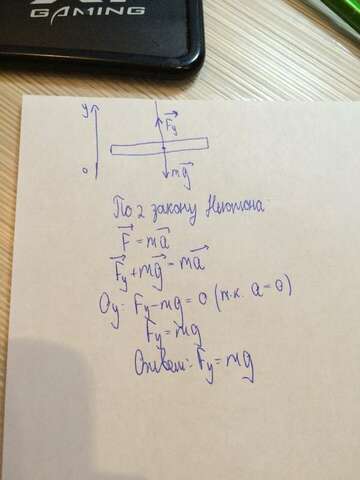 GAMING
y
F⃗у
0
mg⃗
По 2 закону Ньютона
F⃗ = ma⃗
F⃗у + mg⃗ = ma⃗
Oy: Fу - mg = 0 (т.к. a = 0)
Fу = mg
Ответ: Fу = mg